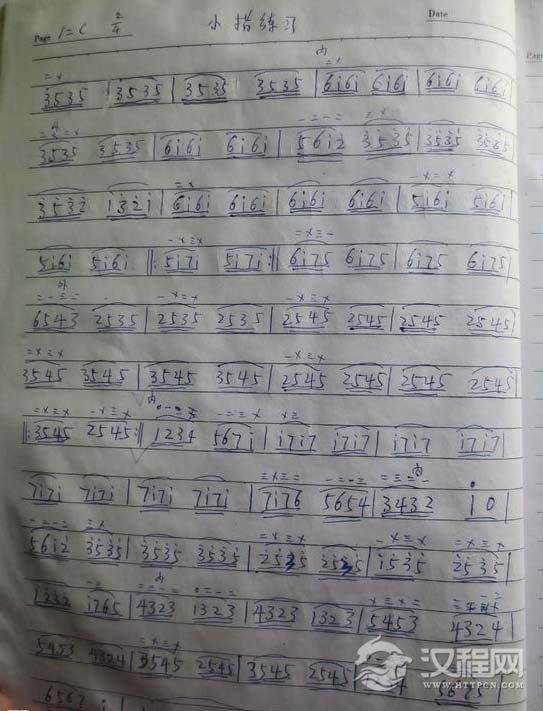 Page 1=C 2/4 小指练习 Date
Page
= x 内 = x
3535 3535 | 3535 3535 | 6i6i 6i6i | 6i6i 6i6i
3535 3535 | 6i6i 6i6i | 56i2 3535 | 3535 3535
3532 1321 | 6i6i 6i6i | 6i6i 6i6i | 5i6i 5i6i
5i6i 5i6i ‖: 5i7i 5i7i :‖ 6i75 6i75 | 6i75 6i75
外
6543 2535 | 2535 2535 | 2545 2545 | 2545 2545
3545 3545 | 3545 3545 | 2545 2545 | 2545 2545
内
‖: 3545 2545 :‖ 1234 567i | i7i7 i7i7 | i7i7 i7i7
内
7i7i 7i7i | 7i7i 7i7i | 7i76 5654 | 3432 10 |
56i2 3535 | 3535 3535 | 2535 2525 | i535 2535
内
1232 i765 | 4323 1323 | 4323 1323 | 5453 4324
5453 4324 | 3545 2545 | 3545 2545
6567
汉程网
WWW.HTTPCN.COM